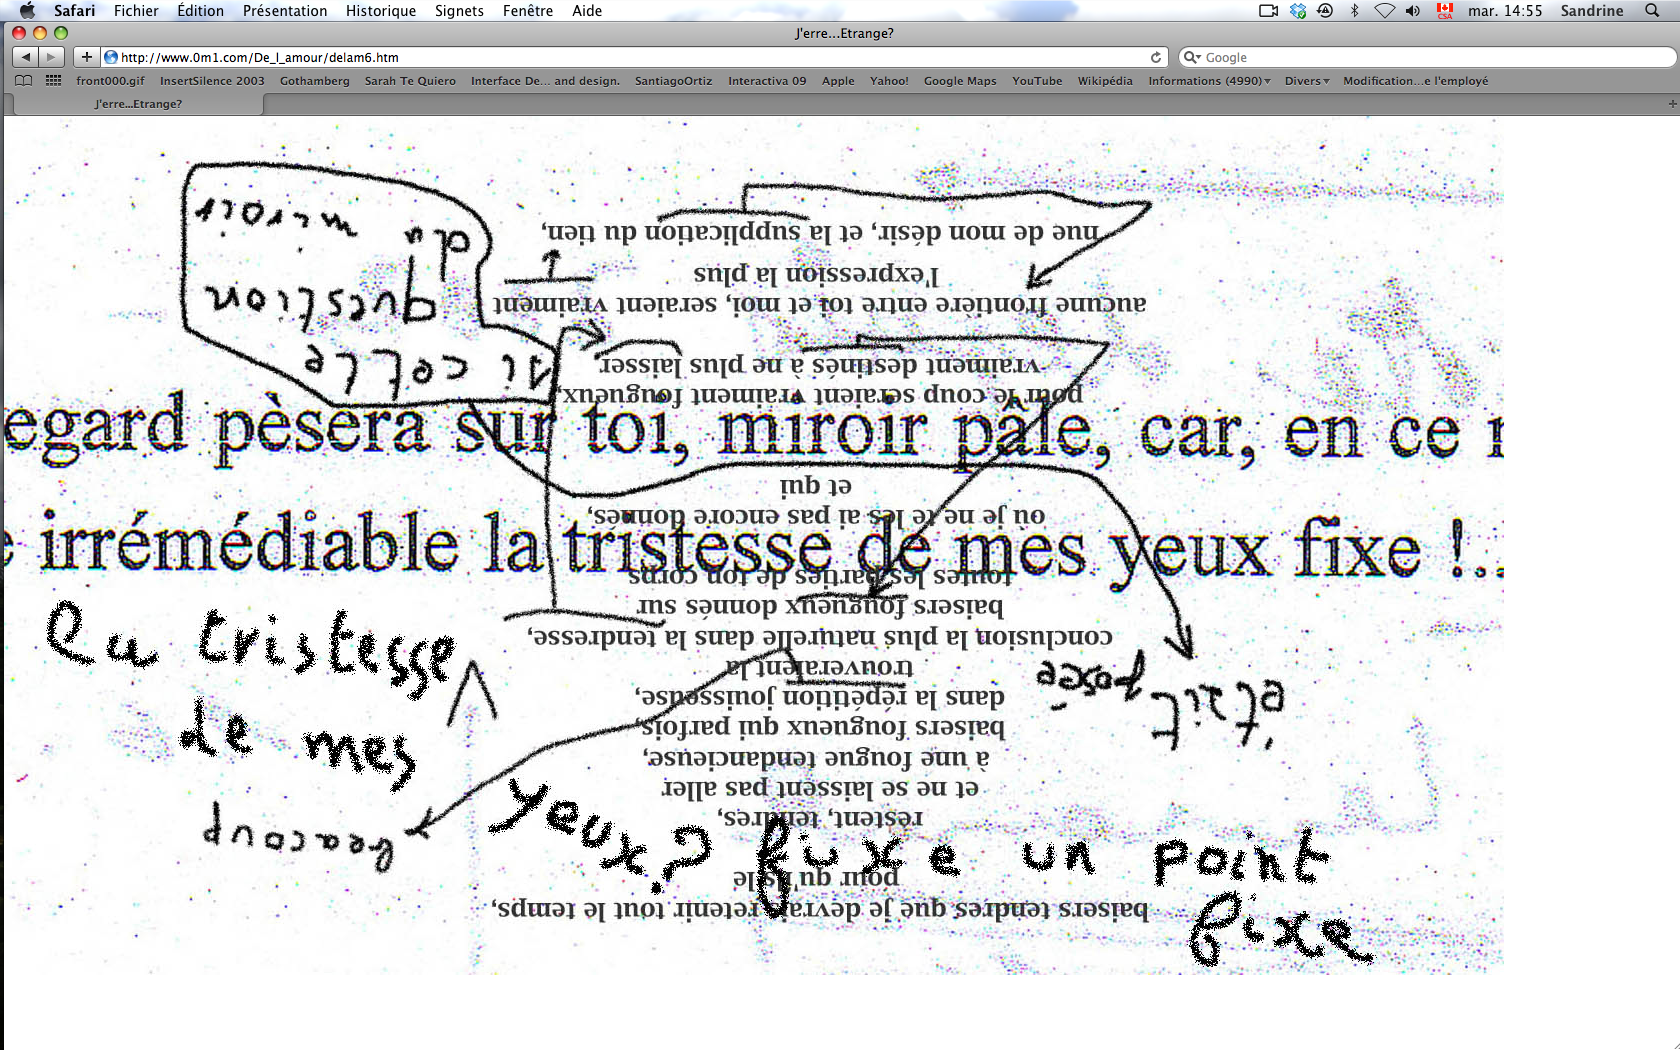 Safari Fichier Édition Présentation Historique Signets Fenêtre Aide
CSA mar. 14:55 Sandrine
J'erre...Etrange?
http://www.0m1.com/De_l_amour/delam6.htm
Google
front000.gif InsertSilence 2003 Gothamberg Sarah Te Quiero Interface De... and design. SantiagoOrtiz Interactiva 09 Apple Yahoo! Google Maps YouTube Wikipédia Informations (4990) Divers Modification...e l'employé
J'erre...Etrange?
egard pèsera sur toi, miroir pâle, car, en ce
irrémédiable la tristesse de mes yeux fixe !..
la tristesse
de mes
yeux? fixe un point
fixe
baisers tendres que je devrais retenir tout le temps,
pour qu'ils le
restent, tendres,
et ne se laissent pas aller
à une fougue tendancieuse,
baisers fougueux qui parfois,
dans la répétition jouisseuse,
trouveraient la
conclusion la plus naturelle dans la tendresse,
baisers fougueux donnés sur
toutes les parties de ton corps
ou je ne te les ai pas encore donnés,
et qui
pour le coup seraient vraiment fougueux,
vraiment destinés à ne plus laisser
aucune frontière entre toi et moi, seraient vraiment
l'expression la plus
nue de mon désir, et la supplication du tien,
si cette
question
du miroir
était
posée
beaucoup